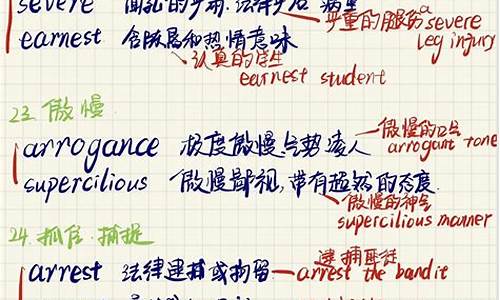 severe 严重的腿伤 a severe leg injury
earnest 含庄居和热情意味
认真的学生 earnest student
23. 傲慢
arrogance 极度傲慢,气势凌人 傲慢的口气 arrogant tone
supercilious 傲慢鄙视,带有超然的态度
傲慢的神气 supercilious manner
24. 抓住.捕捉
arrest 法律逮捕或拘留 逮捕匪徒 arrest the bandit